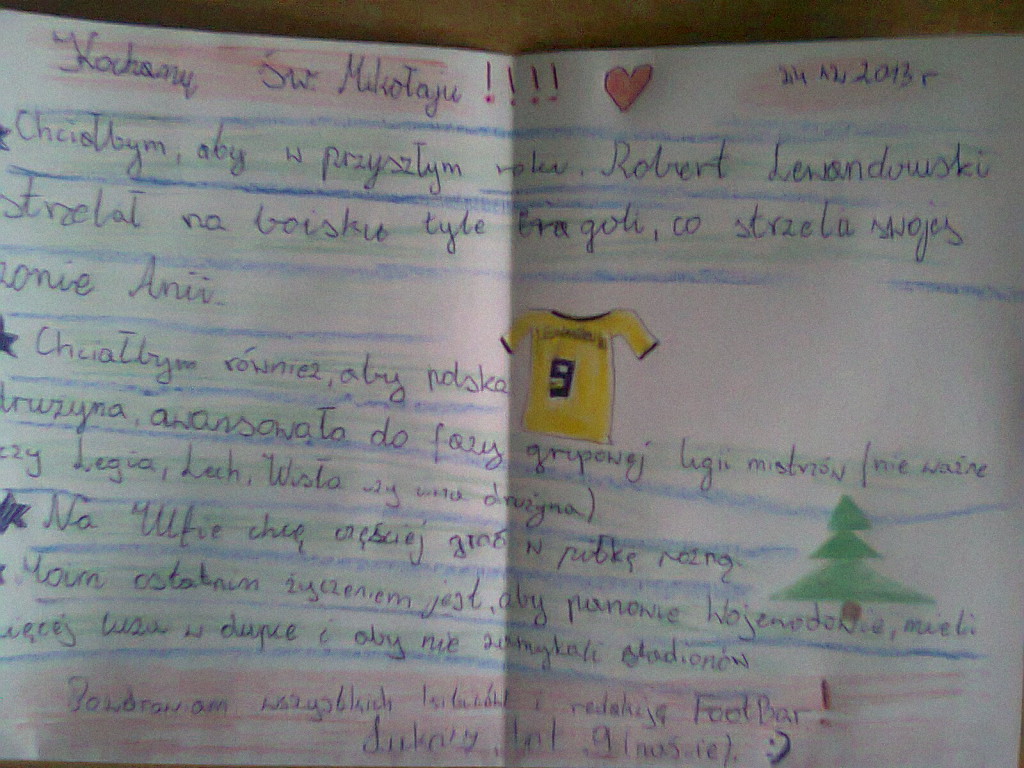 Kochamy św. Mikołaju !!!! 24 12 2013 r
Chciałbym, aby w przyszłym roku. Robert Lewandowski
strzelał na boisku tyle goli, co strzela swojej
żonie Anii.
Chciałbym również, aby polska
drużyna, awansowała do fazy grupowej ligii mistrzów (nie ważne
czy Legia, Lech, Wisła czy inna drużyna)
Na Wfie chcę częściej grać w piłkę nożną.
Moim ostatnim życzeniem jest, aby panowie Wojewodowie, mieli
więcej luzu w dupce i aby nie zamykali stadionów
Pozdrawiam wszystkich i redakcję FootBar!
lat 9 :)
9